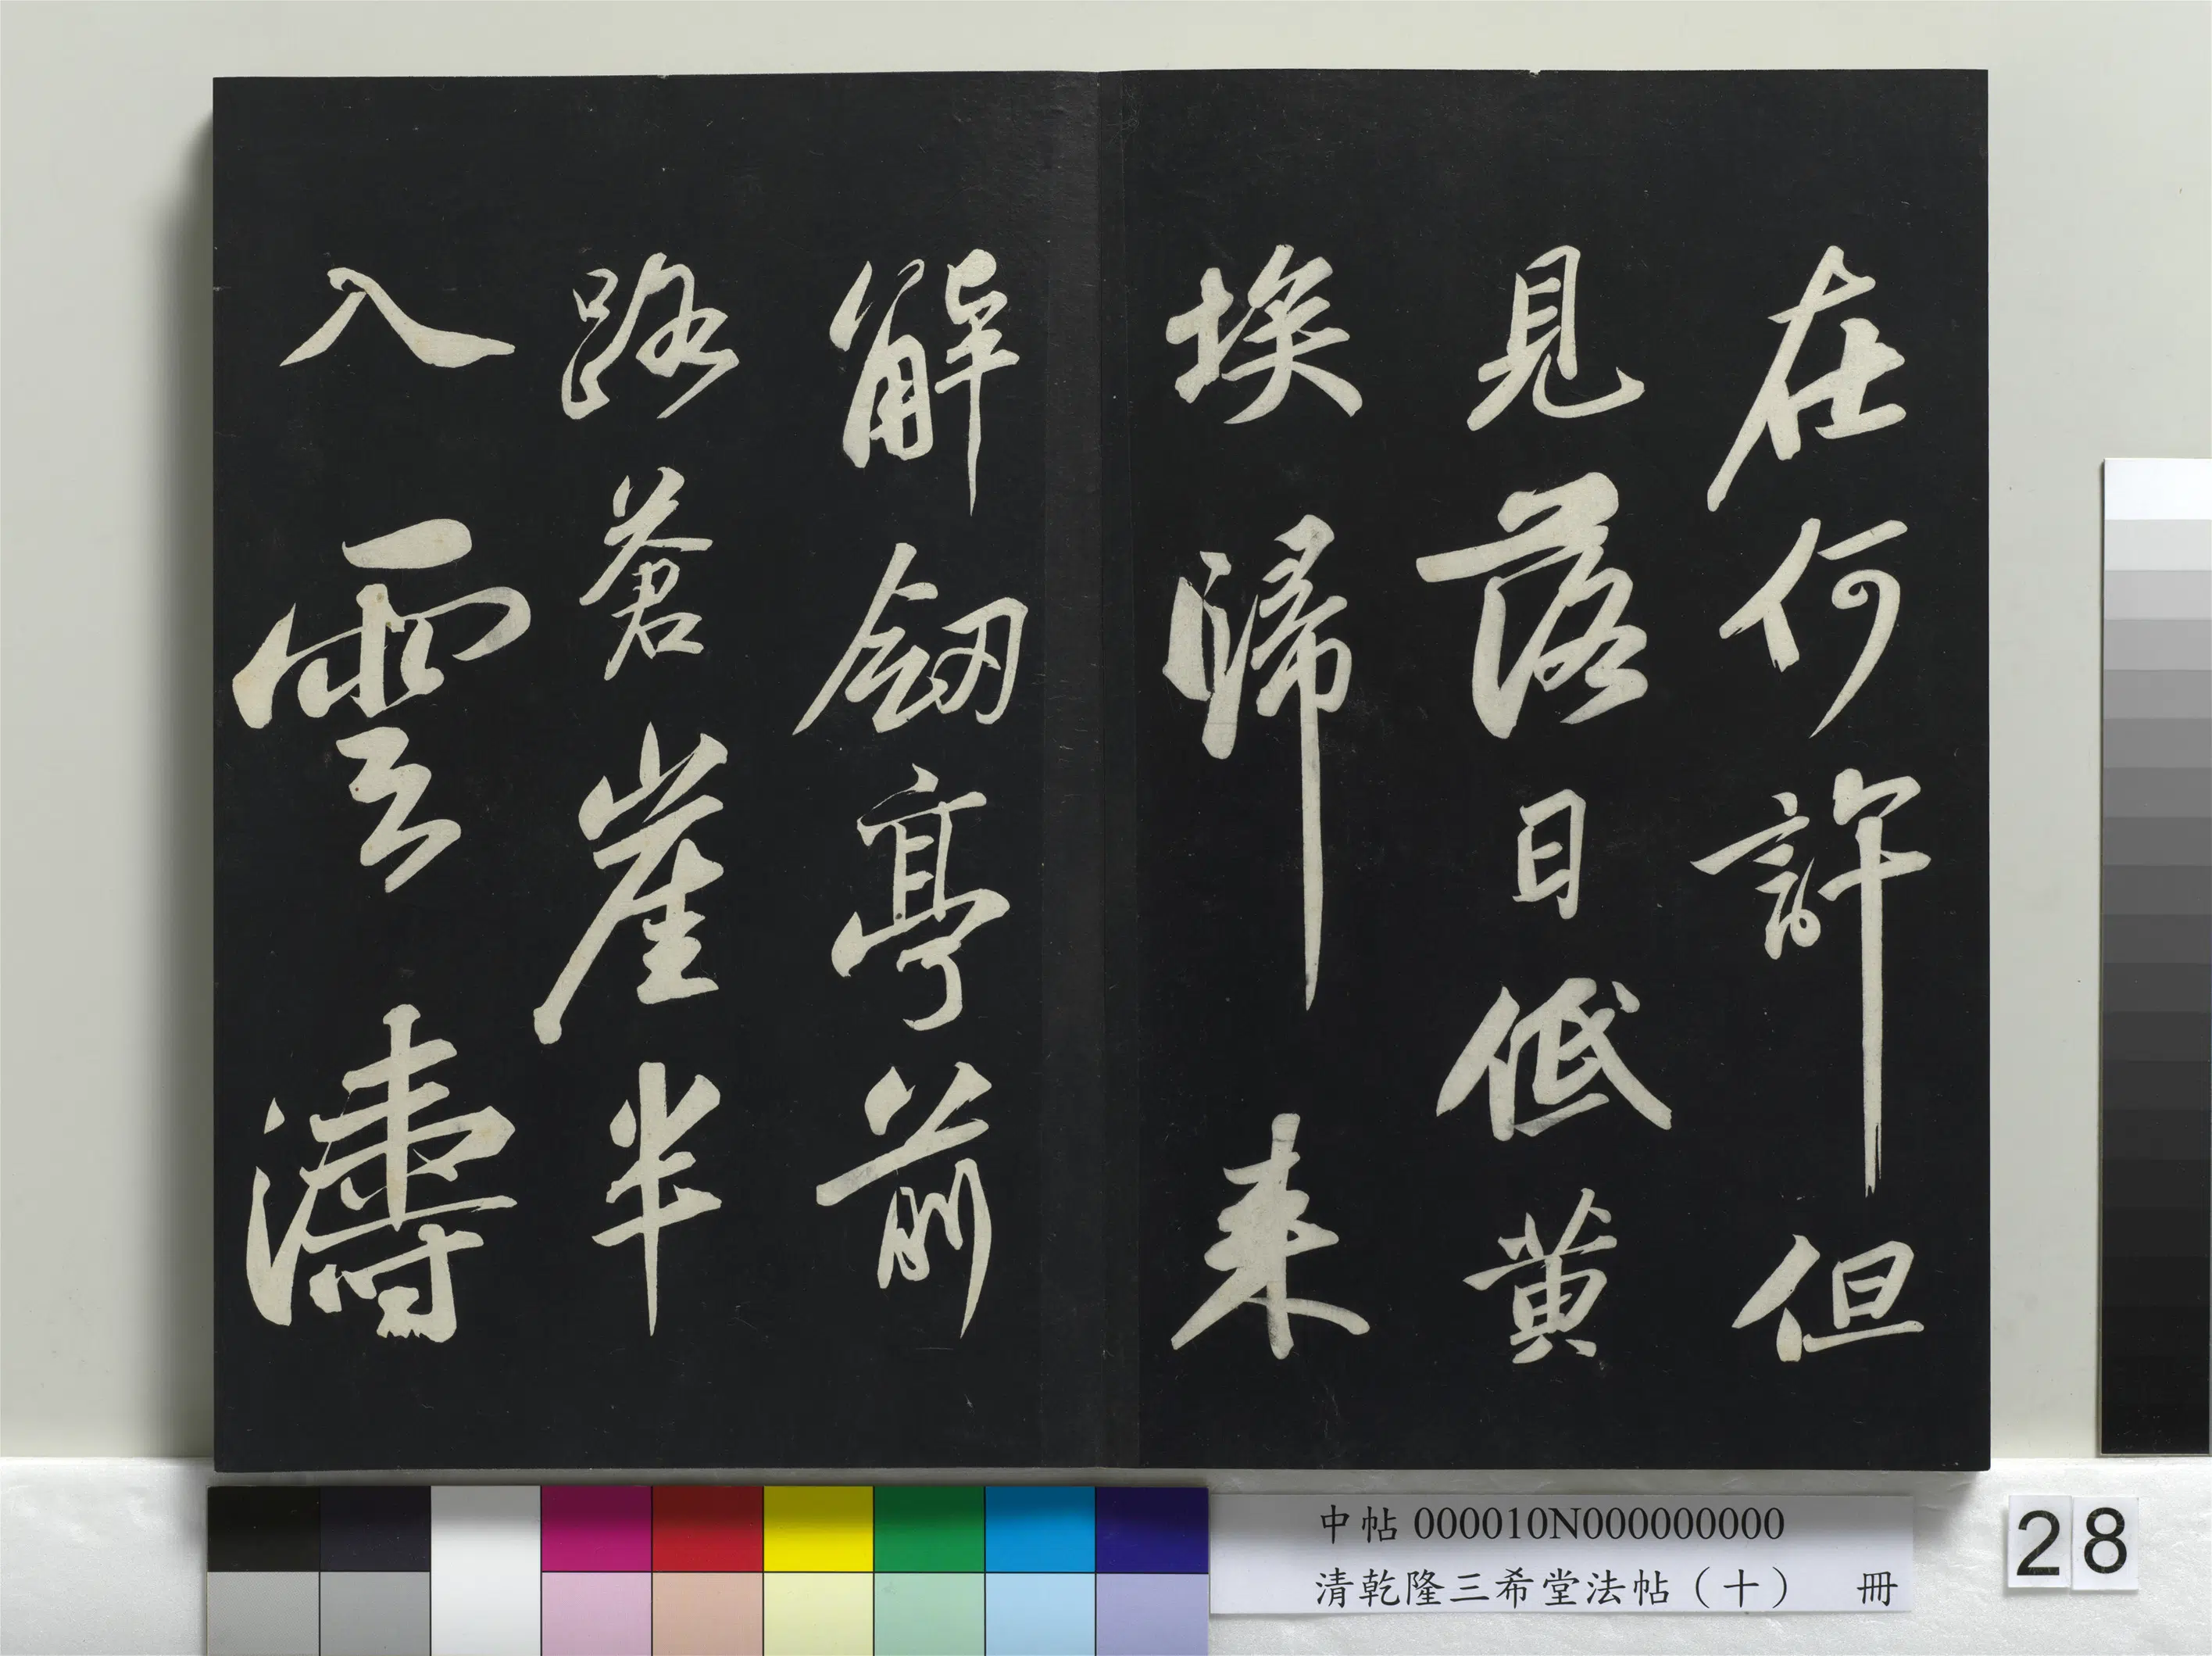 在何許但
見落日低黃
埃歸來
解劒亭前
路蒼崖半
入雲濤
中帖 000010N000000000
清乾隆三希堂法帖（十） 冊
28